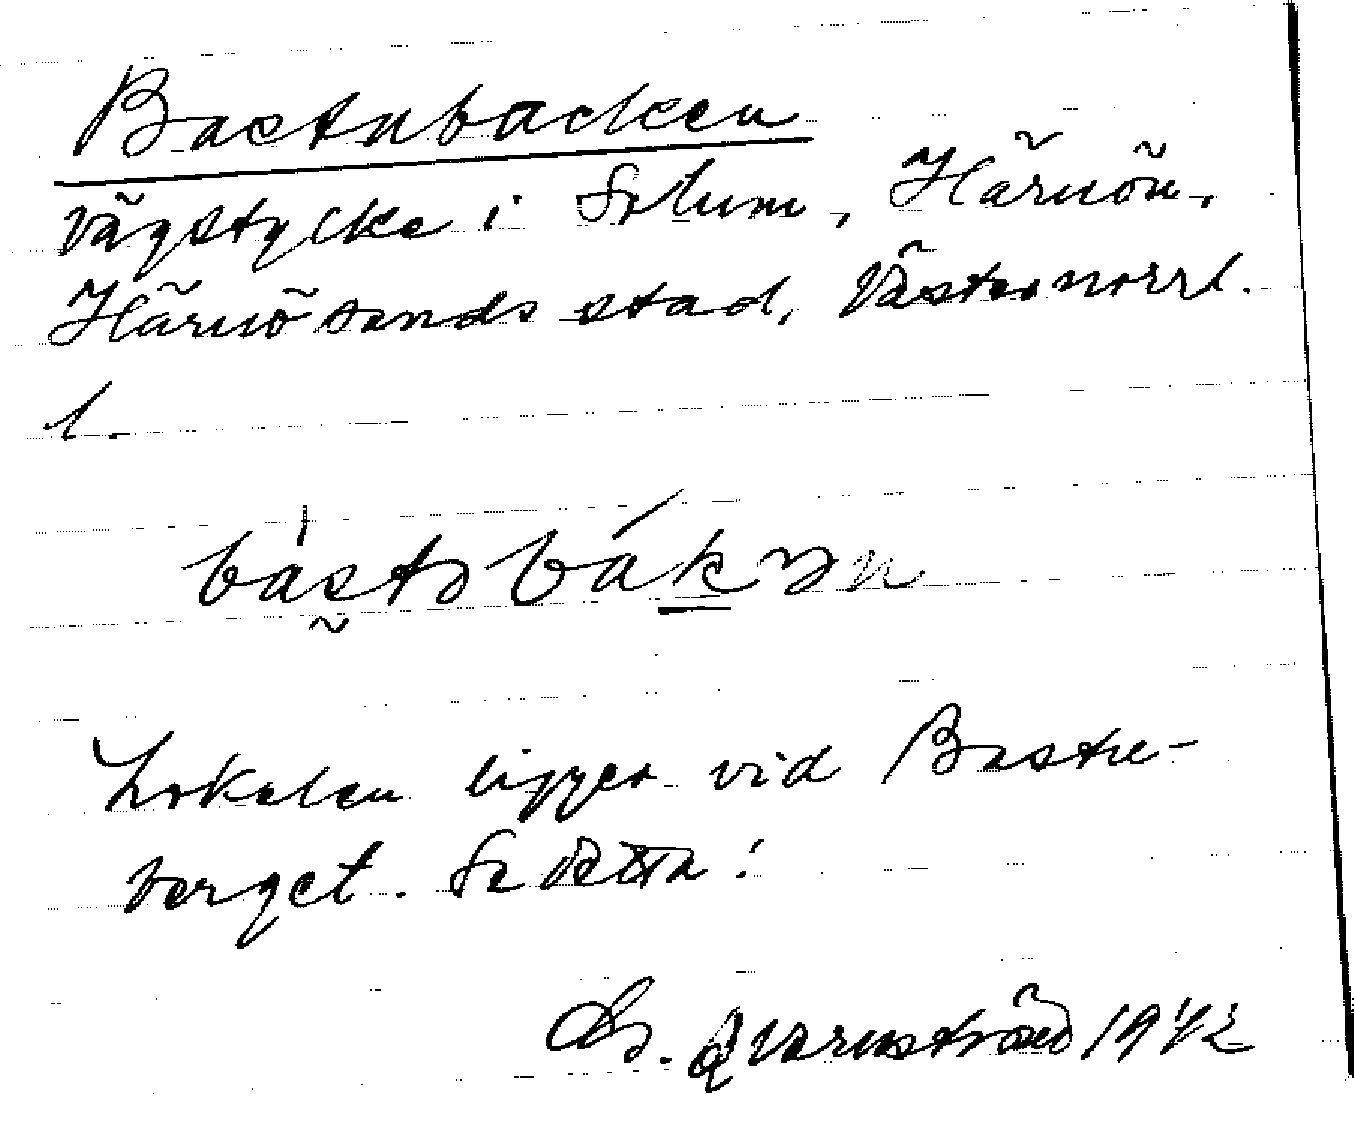 Bastubacken
vägstycke i Solum, Härnön,
Härnösands stad, Västernorrl.
l.
bástobák
Lokalen ligger vid Bastu-
berget. Se detta!
B. Qvarnström 1972